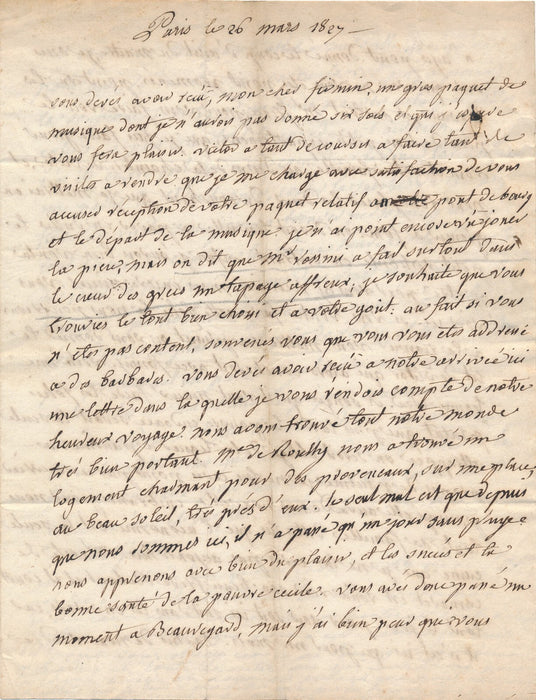 Paris le 26 mars 1827
vous devés avoir reçu, mon cher firmin, un gros paquet de
musique dont je n'aurois pas donné six sols et qui j'espère
vous fera plaisir. victor a tant de courses a faire tant de
visites a rendre que je me charge avec satisfaction de vous
accuser réception de votre paquet relatif a pont de bourg
et le départ de la musique. je n'ai point encore vu jouer
la piece, mais on dit que Mr rossini a fait surtout dans
le cœur des grecs un tapage affreux, je souhaite que vous
trouvies le tout bien choisi et a votre gout. au fait si vous
n'etes pas content, souvenés vous que vous vous etes addressé
a des barbares. vous devés avoir reçu a notre arrivée ici
une lettre dans la quelle je vous rendois compte de notre
heureux voyage. nous avons trouvé tout notre monde
très bien portant. Me de Roully nous a trouvé un
logement charmant pour des provenceaux, sur une place,
au beau soleil, très près d'eux. le seul mal est que depuis
que nous sommes ici, il n'a passé qu'un jour sans pluye.
nous apprenons avec bien du plaisir, et les succés et la
bonne santé de la pauvre cecile. vous avés donc passé un
moment a Beauregard, mais j'ai bien peur que vous